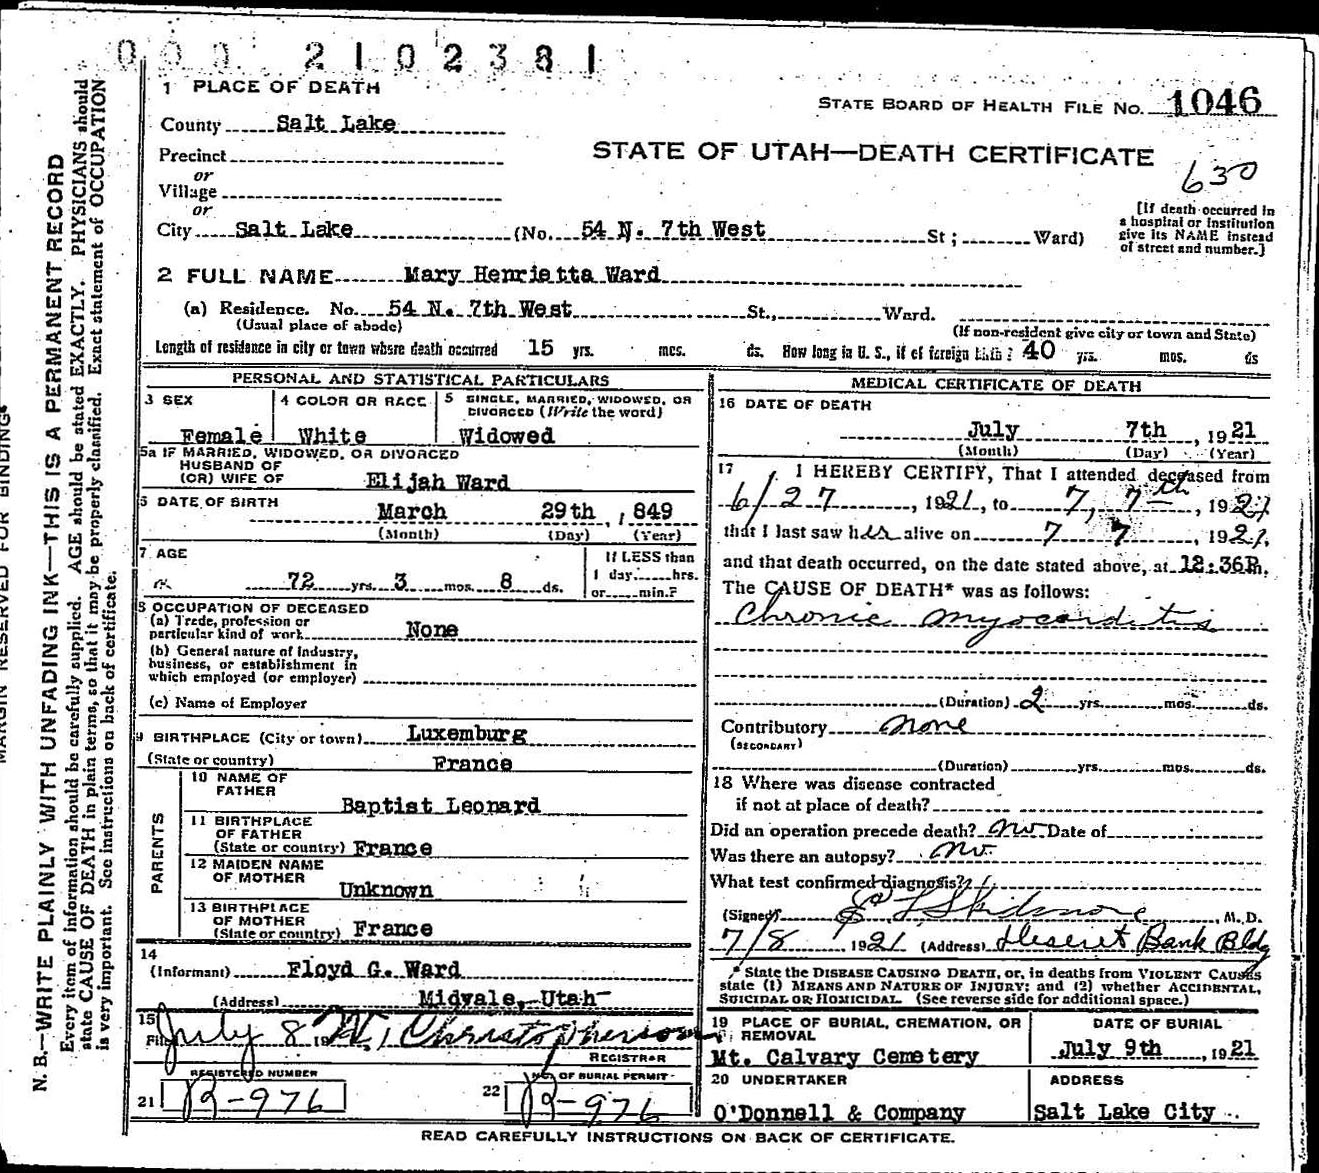 000 2102381
1 PLACE OF DEATH
STATE BOARD OF HEALTH FILE NO. 1046
County Salt Lake
STATE OF UTAH—DEATH CERTIFICATE
Precinct
630
or
Village
or
[If death occurred in a hospital or institution give its NAME instead of street and number.]
City Salt Lake (No. 54 N. 7th West St; Ward)
2 FULL NAME Mary Henrietta Ward
(a) Residence. No. 54 N. 7th West St., Ward.
(Usual place of abode) (If non-resident give city or town and State)
Length of residence in city or town where death occurred 15 yrs. mos. ds. How long in U. S., if of foreign birth? 40 yrs. mos. ds
PERSONAL AND STATISTICAL PARTICULARS
3 SEX
Female
4 COLOR OR RACE
White
5 SINGLE, MARRIED, WIDOWED, OR DIVORCED (Write the word)
Widowed
5a IF MARRIED, WIDOWED, OR DIVORCED
HUSBAND OF
(OR) WIFE OF Elijah Ward
6 DATE OF BIRTH
March 29th, 1849
(Month) (Day) (Year)
7 AGE
72 yrs. 3 mos. 8 ds.
If LESS than
1 day hrs.
or min.?
8 OCCUPATION OF DECEASED
(a) Trade, profession or
particular kind of work None
(b) General nature of industry,
business, or establishment in
which employed (or employer)
(c) Name of Employer
9 BIRTHPLACE (City or town) Luxemburg
(State or country) France
PARENTS
10 NAME OF
FATHER
Baptist Leonard
11 BIRTHPLACE
OF FATHER
(State or country) France
12 MAIDEN NAME
OF MOTHER
Unknown
13 BIRTHPLACE
OF MOTHER
(State or country) France
14
(Informant) Floyd G. Ward
(Address) Midvale, Utah
15
Filed July 8 192 , Christopherson
REGISTRAR
REGISTERED NUMBER
21 B-976
NO. OF BURIAL PERMIT
22 B-976
MEDICAL CERTIFICATE OF DEATH
16 DATE OF DEATH
July 7th, 1921
(Month) (Day) (Year)
17 I HEREBY CERTIFY, That I attended deceased from
6/27, 1921, to 7, 7th, 1921
that I last saw her alive on 7 7, 1921,
and that death occurred, on the date stated above, at 12:36P.m.
The CAUSE OF DEATH* was as follows:
Chronic myocarditis
(Duration) 2 yrs. mos. ds.
Contributory none
(SECONDARY)
(Duration) yrs. mos. ds.
18 Where was disease contracted
if not at place of death?
Did an operation precede death? no Date of
Was there an autopsy? no.
What test confirmed diagnosis?
(Signed) Skidmore, M. D.
7/8 1921 (Address) Deseret Bank Bldg
* State the DISEASE CAUSING DEATH, or, in deaths from VIOLENT CAUSES
state (1) MEANS AND NATURE OF INJURY; and (2) whether ACCIDENTAL,
SUICIDAL OR HOMICIDAL. (See reverse side for additional space.)
19 PLACE OF BURIAL, CREMATION, OR
REMOVAL
Mt. Calvary Cemetery
DATE OF BURIAL
July 9th, 1921
20 UNDERTAKER
O'Donnell & Company
ADDRESS
Salt Lake City
READ CAREFULLY INSTRUCTIONS ON BACK OF CERTIFICATE.
MARGIN RESERVED FOR BINDING
N. B.—WRITE PLAINLY WITH UNFADING INK—THIS IS A PERMANENT RECORD
Every item of information should be carefully supplied. AGE should be stated EXACTLY. PHYSICIANS should
state CAUSE OF DEATH in plain terms, so that it may be properly classified. Exact statement of OCCUPATION
is very important. See instructions on back of certificate.